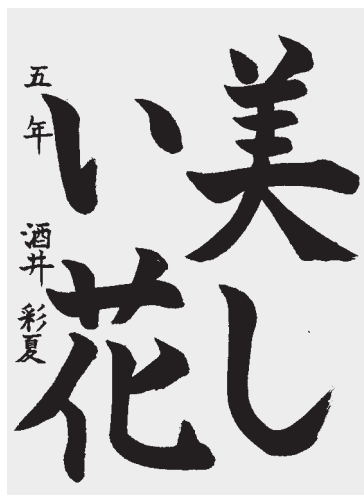 美し
い花
五年 酒井 彩夏